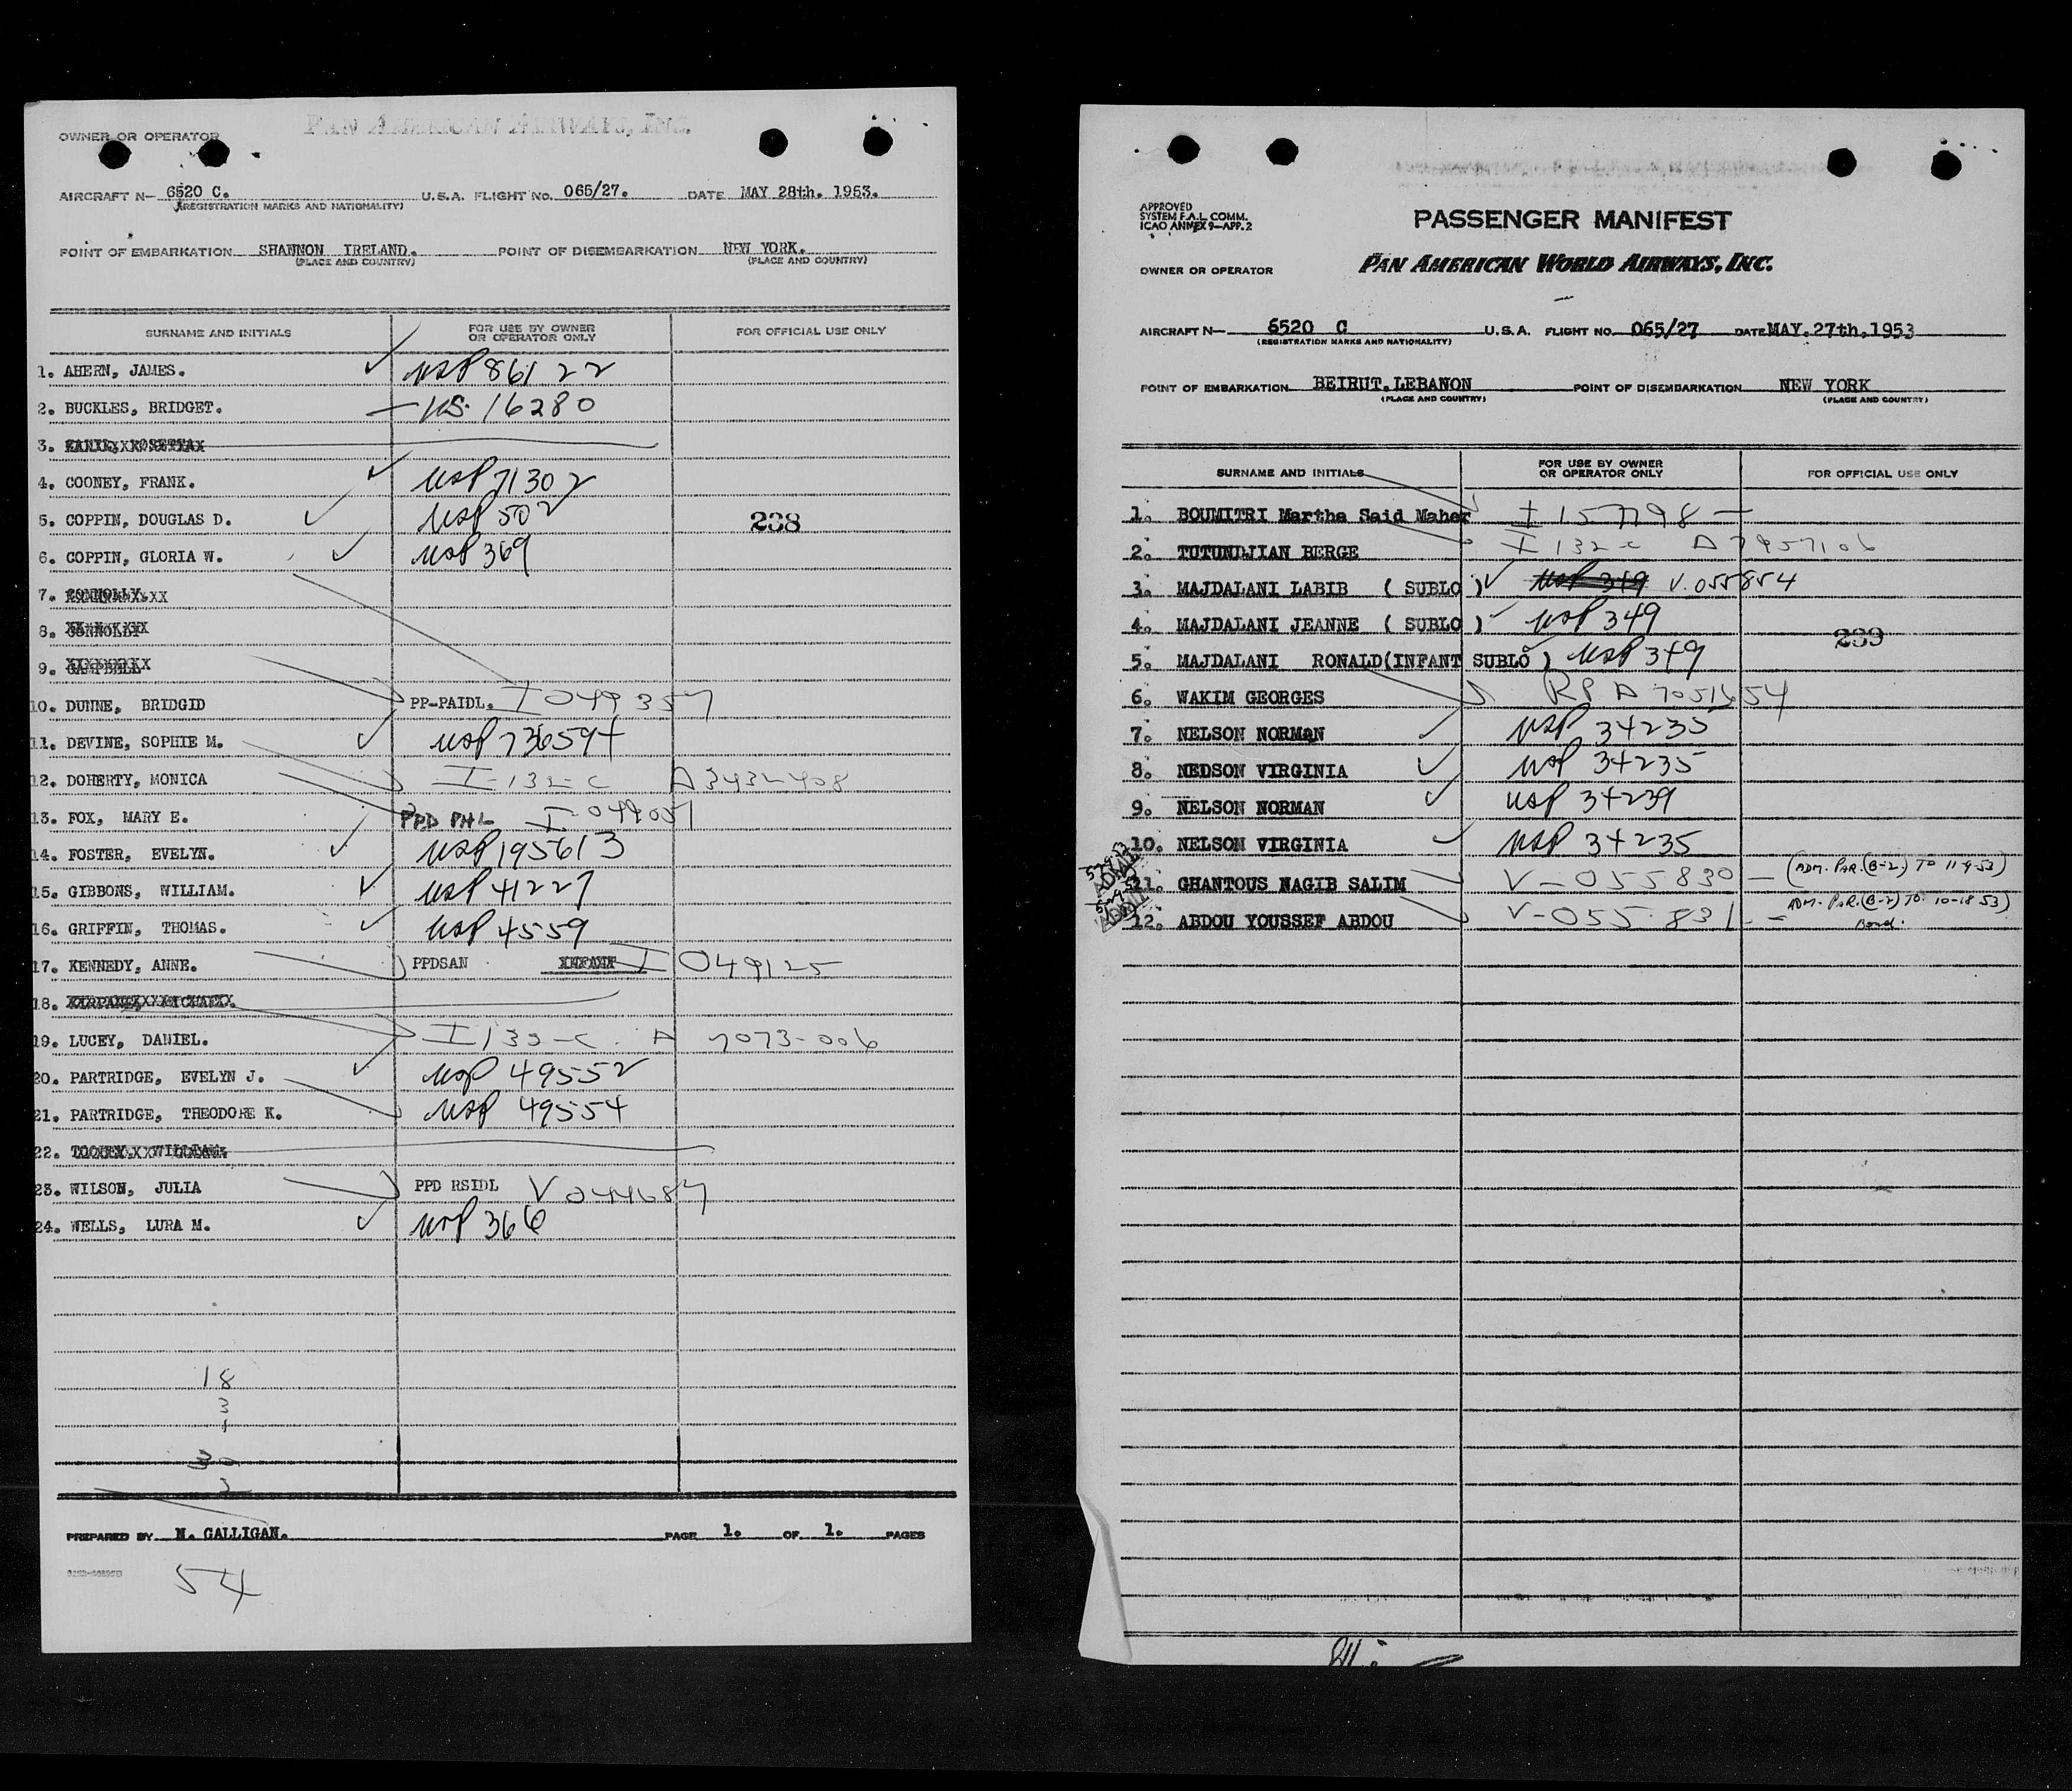 PAN AMERICAN AIRWAYS, INC.
OWNER OR OPERATOR
AIRCRAFT N— 6520 C. U.S.A. FLIGHT NO. 065/27. DATE MAY 28th. 1953.
(REGISTRATION MARKS AND NATIONALITY)
POINT OF EMBARKATION SHANNON IRELAND. POINT OF DISEMBARKATION NEW YORK.
(PLACE AND COUNTRY) (PLACE AND COUNTRY)
SURNAME AND INITIALS FOR USE BY OWNER OR OPERATOR ONLY FOR OFFICIAL USE ONLY
1. AHERN, JAMES. USP 86122
2. BUCKLES, BRIDGET. US. 16280
3.
4. COONEY, FRANK. USP 71302
5. COPPIN, DOUGLAS D. USP 502 238
6. COPPIN, GLORIA W. USP 369
7. CONNOLLY.
8. CONNOLLY
9. CAMPBELL
10. DUNNE, BRIDGID PP-PAIDL. I 049357
11. DEVINE, SOPHIE M. USP 736594
12. DOHERTY, MONICA I-132-C A3432408
13. FOX, MARY E. PPD PHL I-049007
14. FOSTER, EVELYN. USP 195613
15. GIBBONS, WILLIAM. USP 41227
16. GRIFFIN, THOMAS. USP 4559
17. KENNEDY, ANNE. PPDSAN I 049125
18.
19. LUCEY, DANIEL. I 132-C. A 7073-006
20. PARTRIDGE, EVELYN J. USP 49552
21. PARTRIDGE, THEODORE K. USP 49554
22.
23. WILSON, JULIA PPD RSIDL V 044687
24. WELLS, LURA M. USP 366
18
3
1
2
PREPARED BY N. GALLIGAN. PAGE 1. OF 1. PAGES
54
APPROVED
SYSTEM F.A.L. COMM.
ICAO ANNEX 9—APP. 2
PASSENGER MANIFEST
OWNER OR OPERATOR PAN AMERICAN WORLD AIRWAYS, INC.
AIRCRAFT N— 6520 C U.S.A. FLIGHT NO. 065/27 DATE MAY.27th,1953
(REGISTRATION MARKS AND NATIONALITY)
POINT OF EMBARKATION BEIRUT.LEBANON POINT OF DISEMBARKATION NEW YORK
(PLACE AND COUNTRY) (PLACE AND COUNTRY)
SURNAME AND INITIALS FOR USE BY OWNER OR OPERATOR ONLY FOR OFFICIAL USE ONLY
1. BOUMITRI Martha Said Maher I 157798 —
2. TUTUNDJIAN BERGE I 132-C A 7957106
3. MAJDALANI LABIB ( SUBLO ) USP 349 V. 055854
4. MAJDALANI JEANNE ( SUBLO ) USP 349
239
5. MAJDALANI RONALD(INFANT SUBLO ) USP 349
6. WAKIM GEORGES RP A 7051654
7. NELSON NORMAN USP 34235
8. NEDSON VIRGINIA USP 34235
9. NELSON NORMAN USP 34239
10. NELSON VIRGINIA USP 34235
11. GHANTOUS NAGIB SALIM V-055830 — (ADM. PAR.(B-2.) TO 11-9-53)
12. ABDOU YOUSSEF ABDOU V-055831 — ADM. PAR.(B-2) TO. 10-18 53)
Bond.